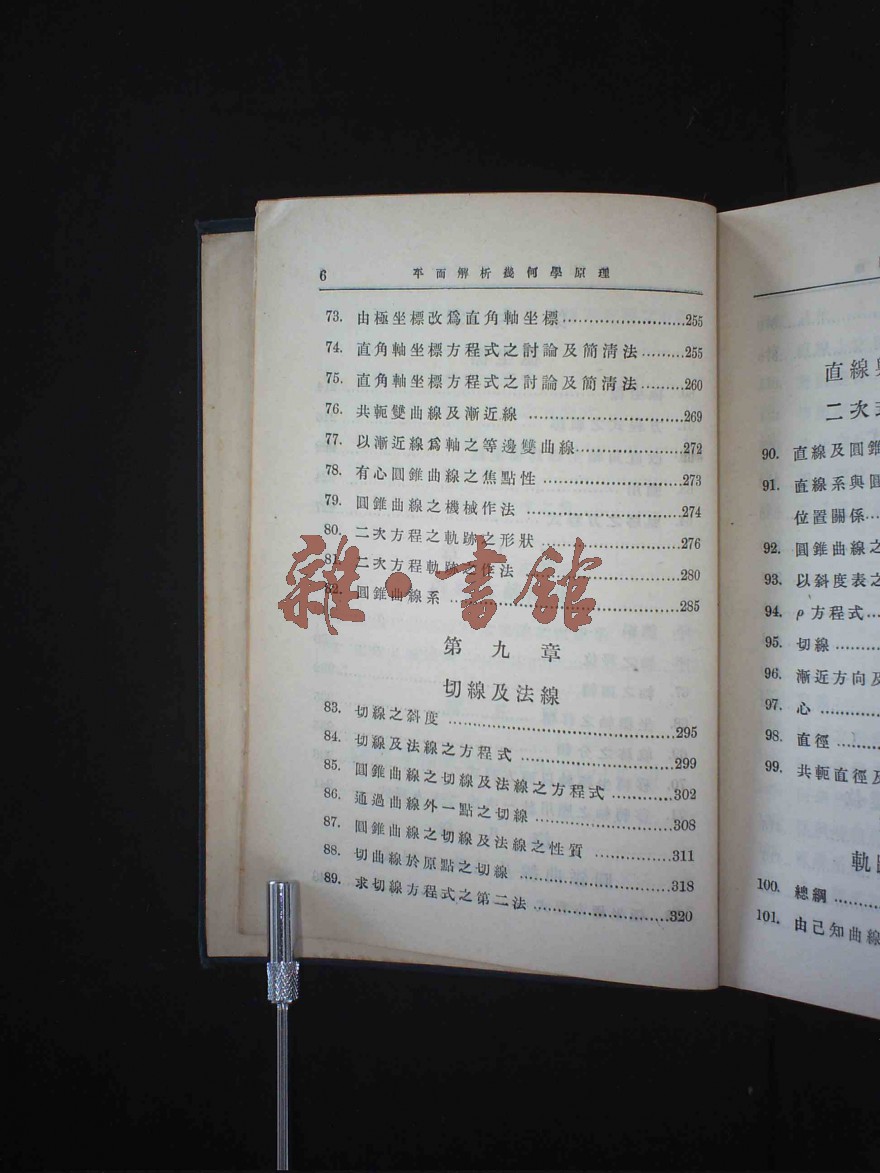 6 平面解析幾何學原理
73. 由極坐標改爲直角軸坐標……………………255
74. 直角軸坐標方程式之討論及簡淸法………255
75. 直角軸坐標方程式之討論及簡淸法………260
76. 共軛雙曲線及漸近線……………………269
77. 以漸近線爲軸之等邊雙曲線……………………272
78. 有心圓錐曲線之焦點性……………………273
79. 圓錐曲線之機械作法……………………274
80. 二次方程之軌跡之形狀……………………276
81. 二次方程軌跡之作法……………………280
82. 圓錐曲線系……………………285
雜·書館
第九章
切線及法線
83. 切線之斜度……………………295
84. 切線及法線之方程式……………………299
85. 圓錐曲線之切線及法線之方程式………302
86. 通過曲線外一點之切線……………………308
87. 圓錐曲線之切線及法線之性質…………311
88. 切曲線於原點之切線……………………318
89. 求切線方程式之第二法……………………320
直線
二次
90. 直線及圓錐
91. 直線系與圓
位置關係…
92. 圓錐曲線之
93. 以斜度表之
94. ρ方程式……
95. 切線………
96. 漸近方向及
97. 心…………
98. 直徑………
99. 共軛直徑及
軌
100. 總綱………
101. 由已知曲線